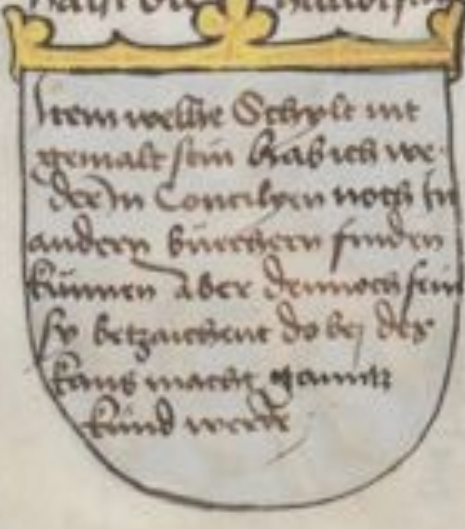 Item wellhe Schylt nit
gemalt sein hab ich we-
der in Concilyen noch in
andern büechern finden
künnen Aber dennoch sein
sy betzaichent do bej des
kaus macht ganntz
künd werde